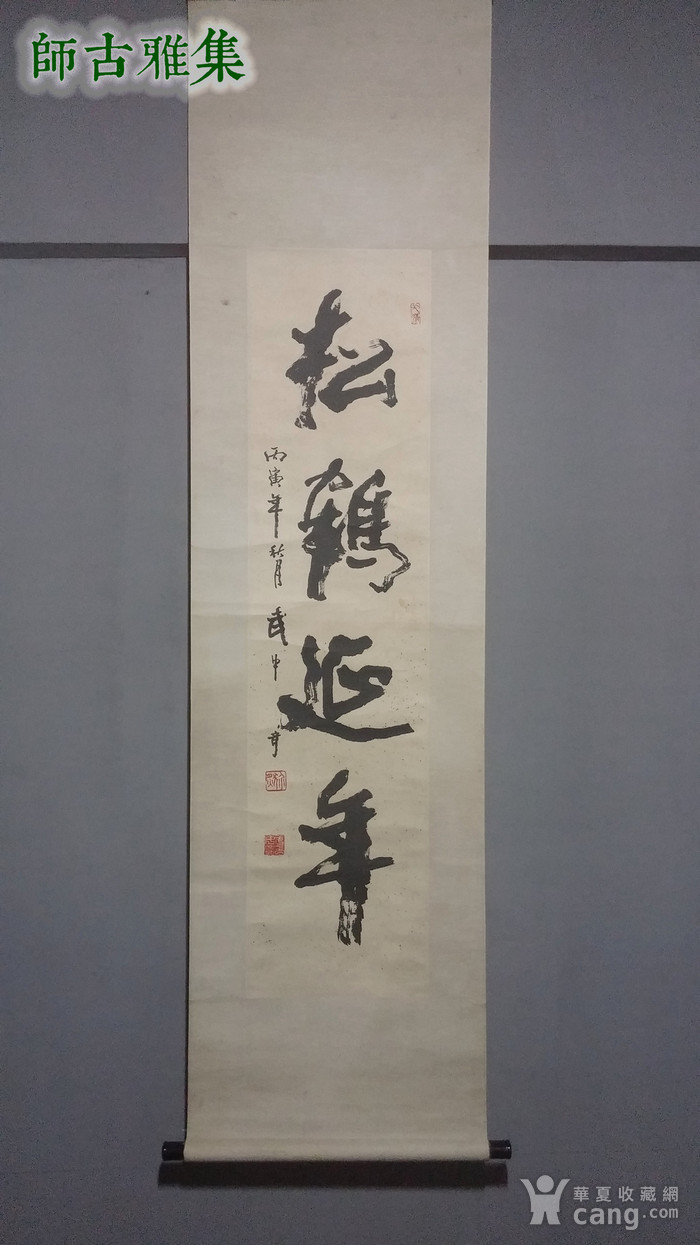 師古雅集
松鶴延年
丙寅年秋月武中奇
華夏收藏網
cang.com